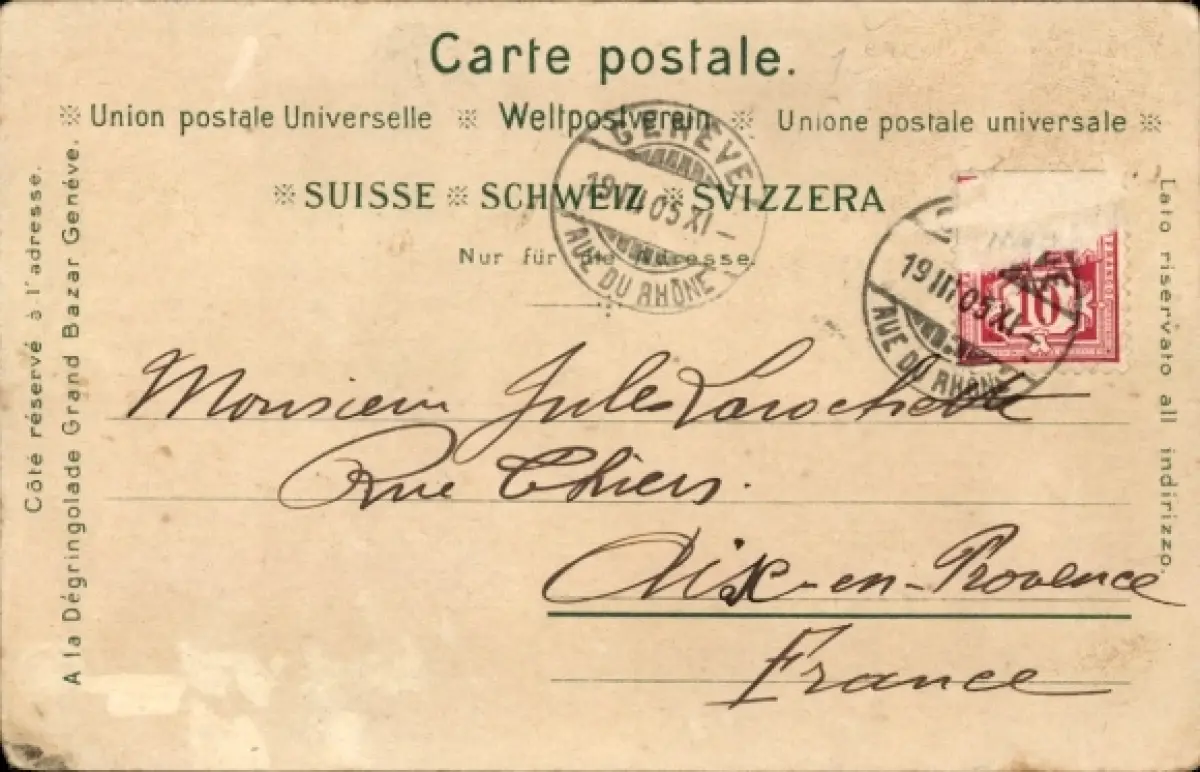 Carte postale.
※ Union postale Universelle ※ Weltpostverein ※ Unione postale universale ※
※ SUISSE ※ SCHWEIZ ※ SVIZZERA
Nur für die Adresse.
GENÈVE
19 III 05 XI –
RUE DU RHÔNE
19 III 05 XI –
RUE DU RHÔNE
10
FRANCO
Monsieur Jules Larochette
Rue Thiers.
Aix-en-Provence
France
Côté réservé à l'adresse.
A la Dégringolade Grand Bazar Genéve.
Lato riservato all indirizzo.